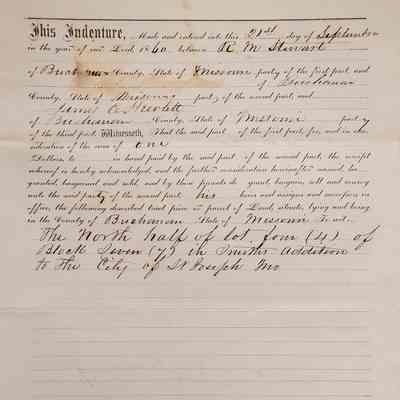 This Indenture, Made and entered into this 21st day of September
in the year of our Lord, 1860 between R. M. Stewart
of Buchanan County, State of Missouri party of the first part, and
of Buchanan
County, State of Missouri party of the second part, and
James C.
of Buchanan County, State of Missouri party
of the third part, Witnesseth, That the said part of the first part, for, and in con-
sideration of the sum of one
Dollars, to in hand paid by the said part of the second part, the receipt
whereof is hereby acknowledged, and the further consideration hereinafter named, ha
granted, bargained and sold, and by these presents do grant, bargain, sell and convey
unto the said party of the second part, his heirs and assigns and successors in
office, the following described tract piece or parcel of Land, situate, lying and being
in the County of Buchanan State of Missouri to wit:
The North half of lot four (4) of
Block Seven (7) in Smiths Addition
to the City of St Joseph Mo